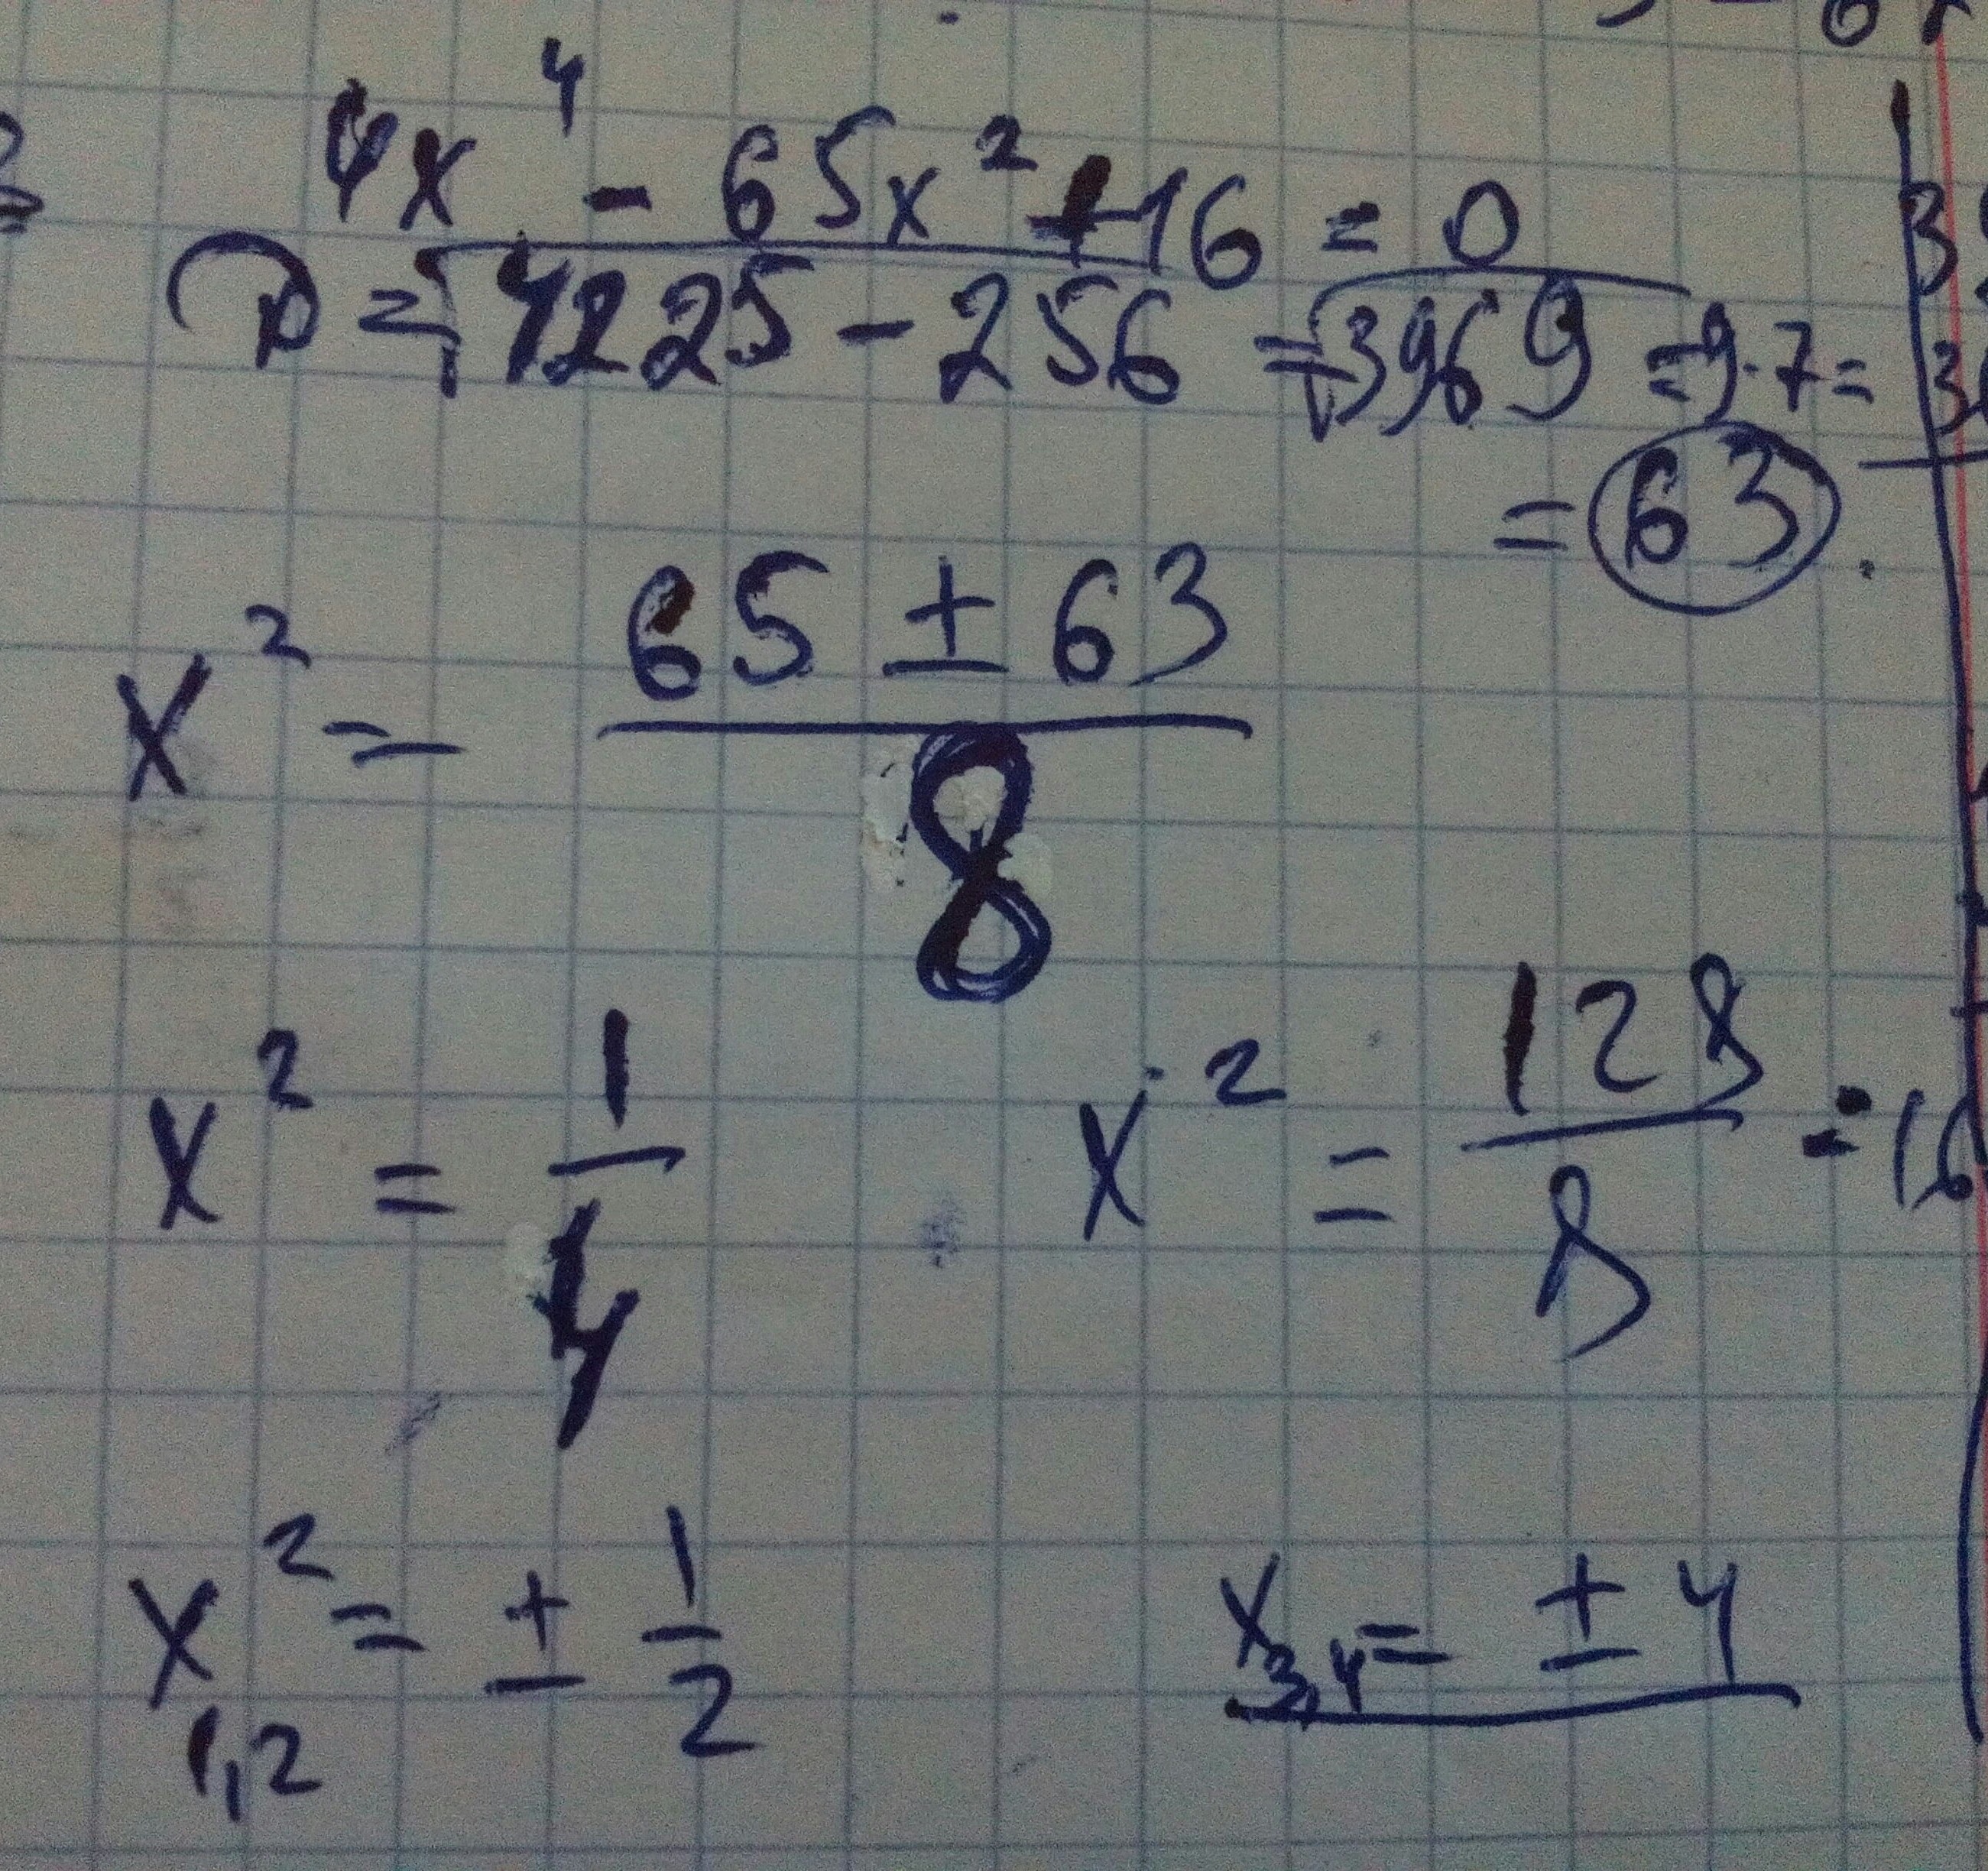 4x⁴ - 65x² + 16 = 0
D = √4225 - 256 = √3969 = 9·7 =
= 63.
x² = (65 ± 63)/8
x² = 1/4    x² = 128/8 = 16
x²₁,₂ = ± 1/2    x₃,₄ = ± 4